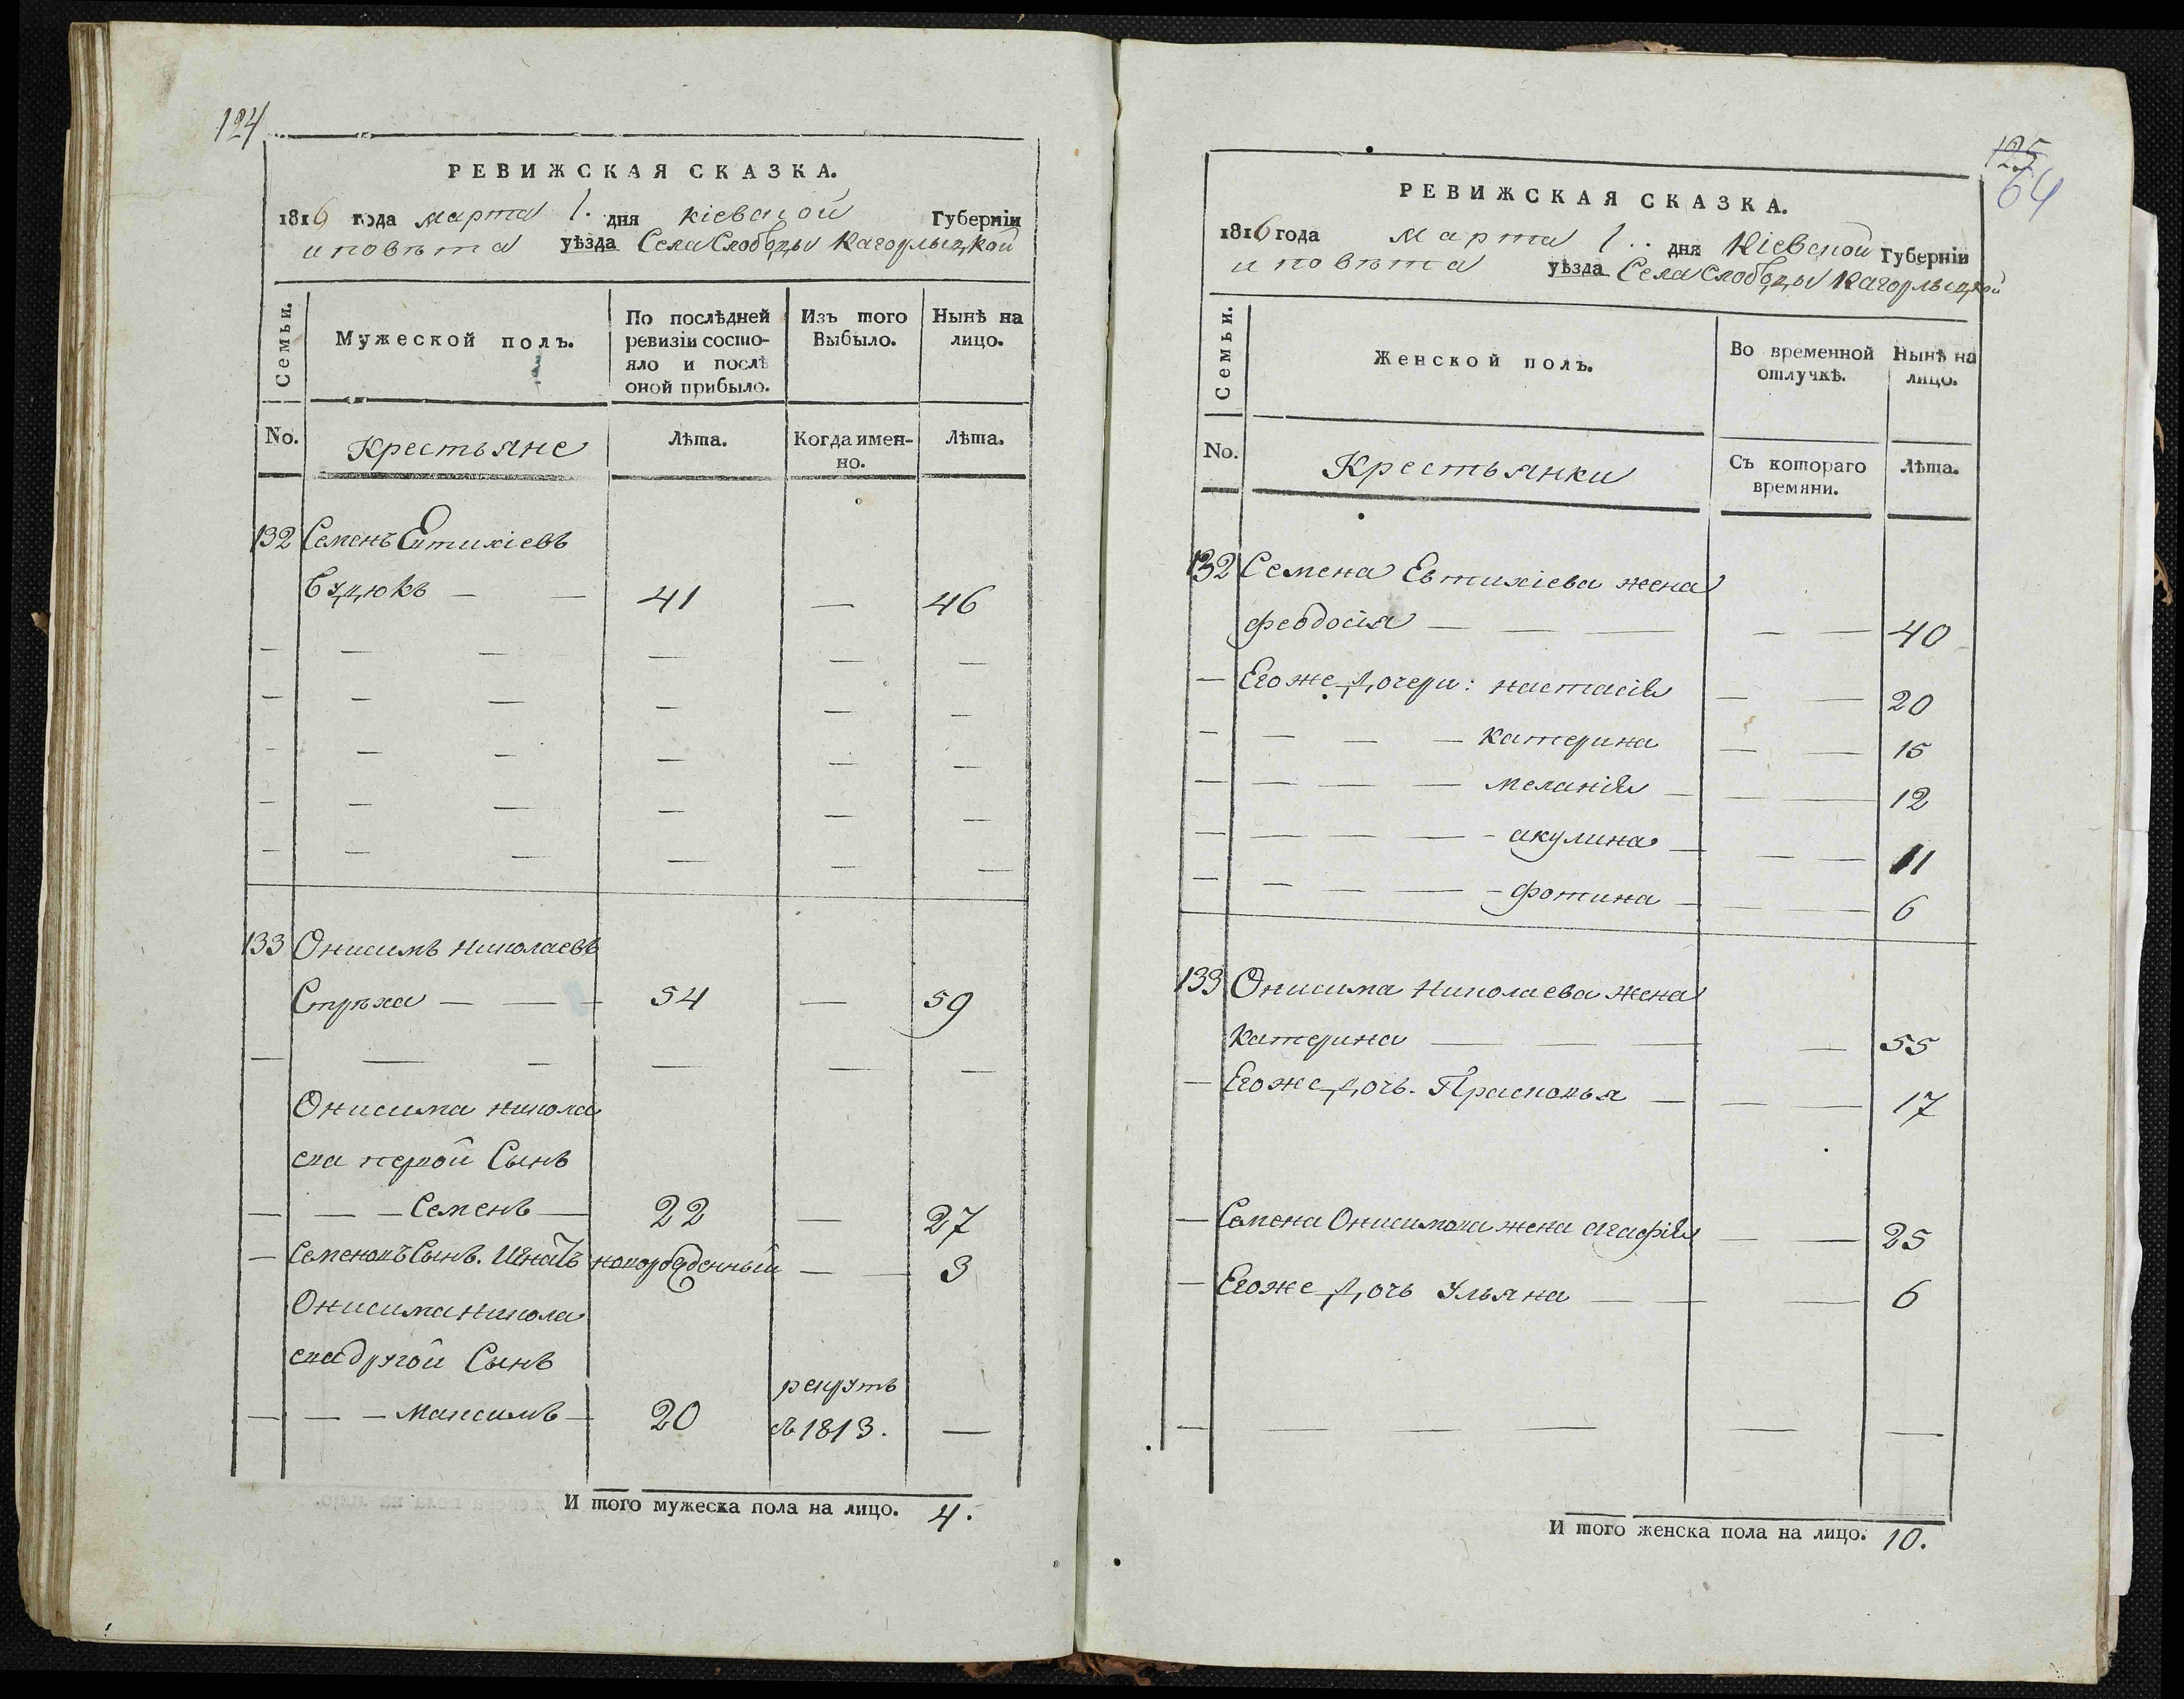 124
РЕВИЖСКАЯ СКАЗКА.
1816 года марта 1. дня кіевской Губерніи
и повѣта уѣзда Села Слободы Кагорлыцкой
Семьи.
Мужеской полъ.
По послѣдней ревизіи состояло и послѣ оной прибыло.
Изъ того Выбыло.
Нынѣ на лицо.
No.
Крестьяне
Лѣта.
Когда именно.
Лѣта.
132 Семенъ Евтихіевъ
Буцюкъ — — 41 — 46
133 Онисимъ Николаевъ
Стрѣха — — — 54 — 59
Онисима Никола
ева первой Сынъ
— — — Семенъ — 22 — 27
— Семеновъ Сынъ. Игнатъ новорожденный — — 3
Онисима Никола
ева другой Сынъ
рекрутъ
— — — Максимъ — 20 въ 1813. —
И того мужеска пола на лицо. 4.
125
64
РЕВИЖСКАЯ СКАЗКА.
1816 года марта 1.. дня Кіевской Губерніи
и повѣта уѣзда Села Слободы Кагорлыцкой
Семьи.
Женской полъ.
Во временной отлучкѣ.
Нынѣ на лицо.
No.
Крестьянки
Съ котораго времяни.
Лѣта.
132 Семена Евтихіева жена
феодосія — — — — — 40
— Егоже дочери: настасія — — 20
— — — — катерина — — 15
— — — — меланія — — — 12
— — — — — акулина — — — 11
— — — — — фотина — — — 6
133 Онисима Николаева жена
Катерина — — — — 55
— Егоже дочь. Прасковья — — — 17
— Семена Онисимова жена агафія — — 25
— Егоже дочь Ульяна — — — 6
И того женска пола на лицо. 10.